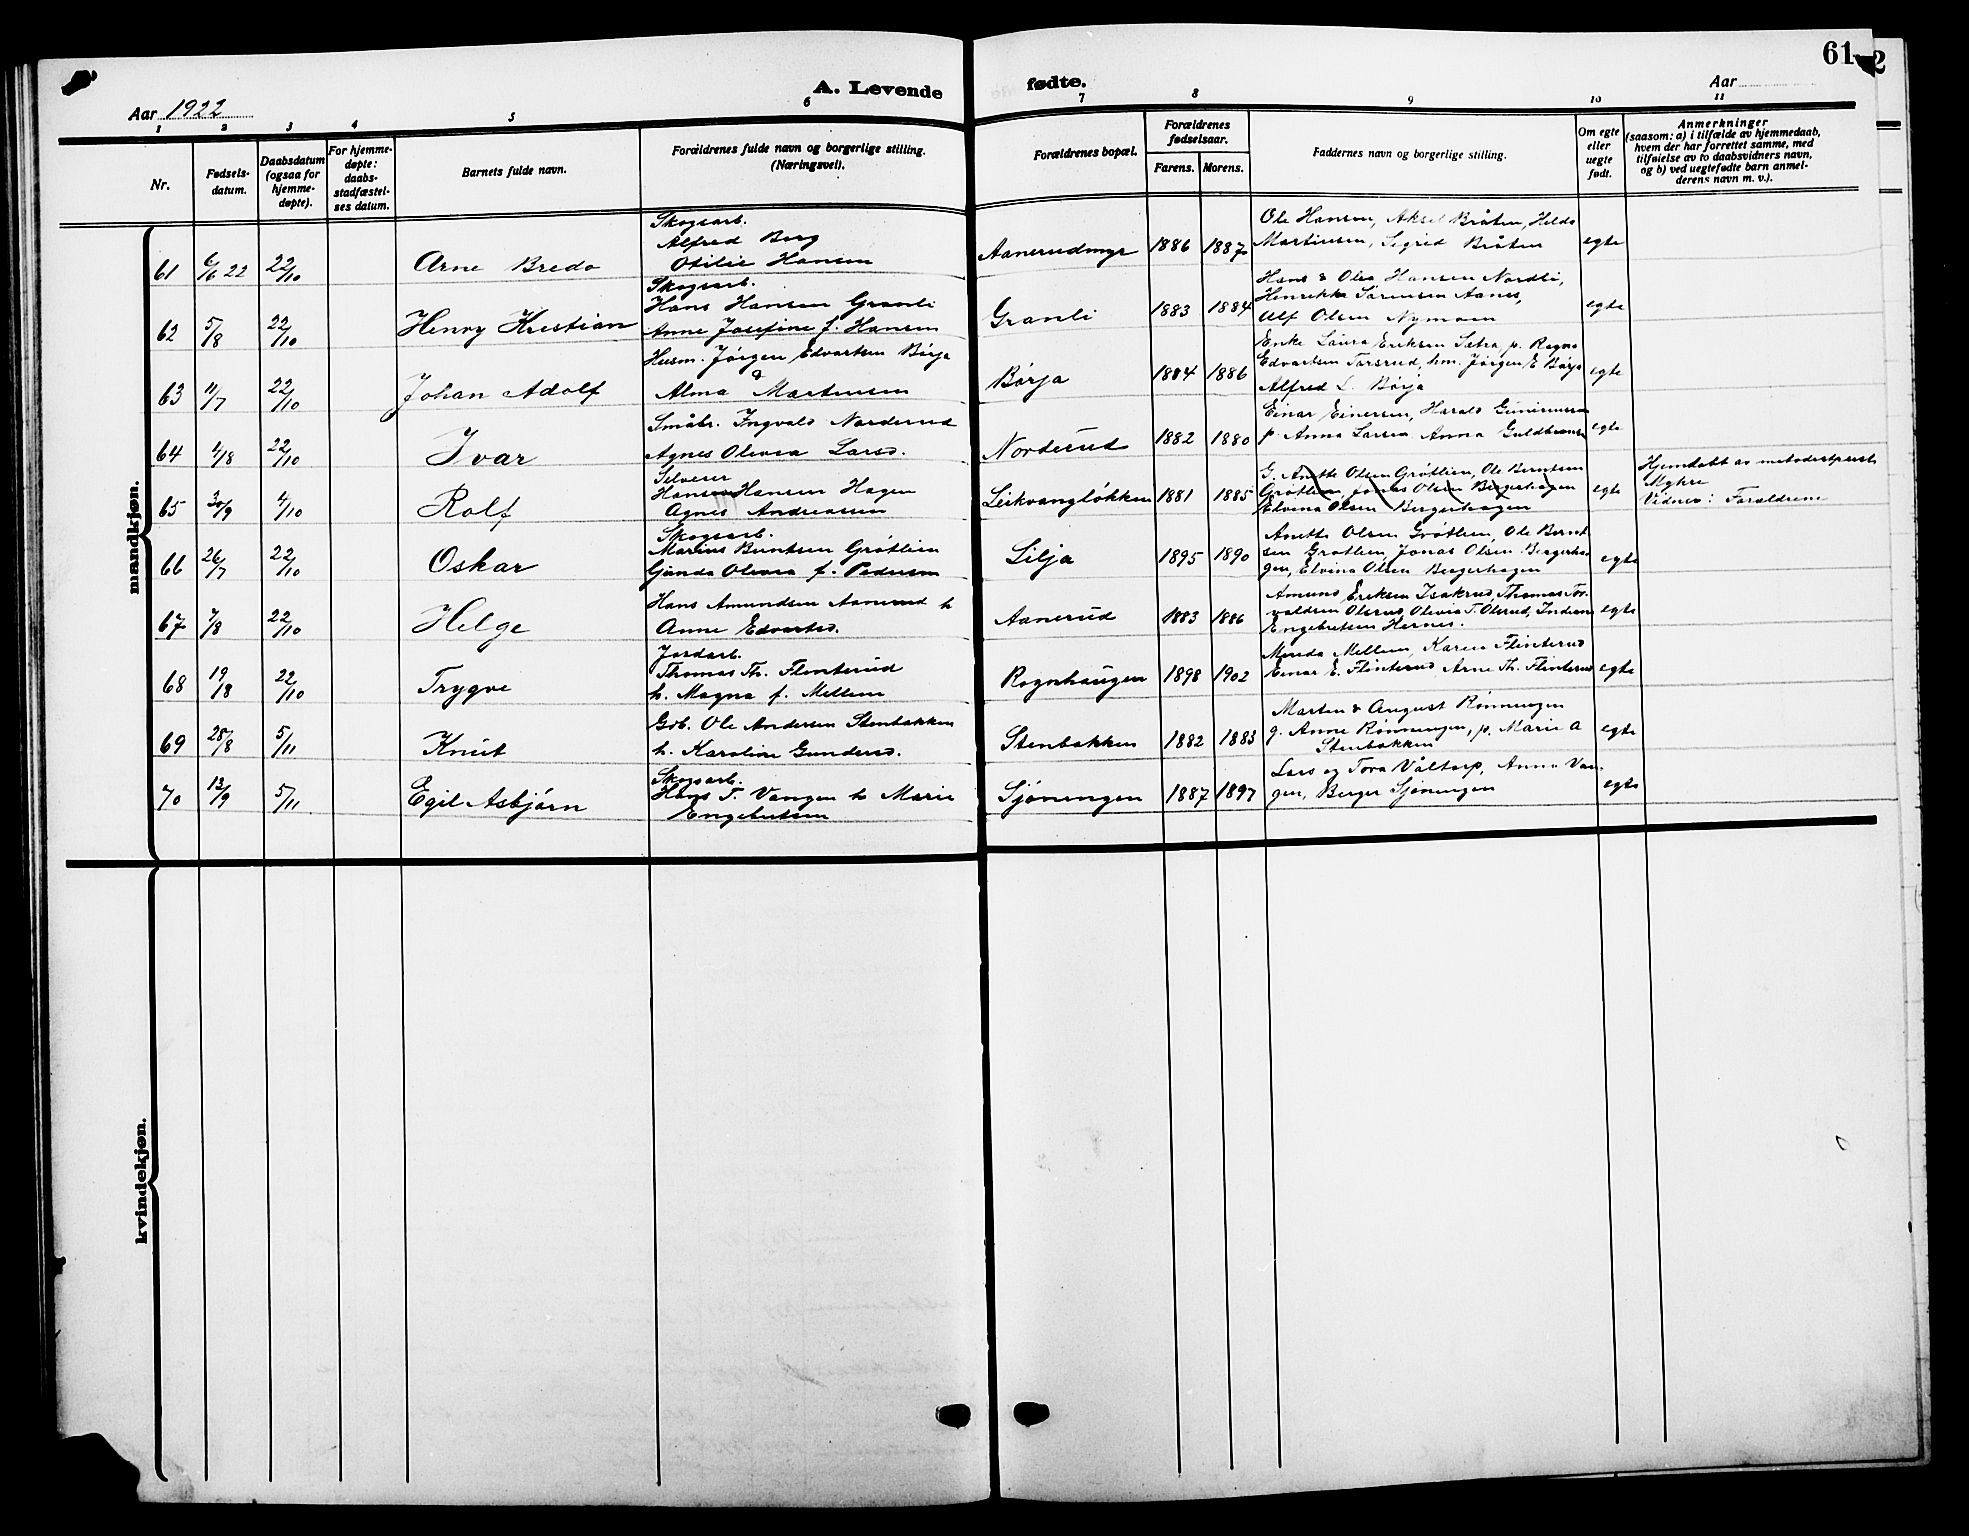 61
2
A. Levende fødte.
Aar 1922
Aar
1 2 3 4 5 6 7 8 9 10 11
Nr.
Fødsels-
datum.
Daabsdatum
(ogsaa for
hjemme-
døpte).
For hjemme-
døpte:
daabs-
stadfæstel-
ses datum.
Barnets fulde navn.
Forældrenes fulde navn og borgerlige stilling.
(Næringsvei).
Forældrenes bopæl.
Forældrenes
fødselsaar.
Farens. Morens.
Faddernes navn og borgerlige stilling.
Om egte
eller
uegte
født.
Anmerkninger
(saasom: a) i tilfælde av hjemmedaab,
hvem der har forrettet samme, med
tilføielse av to daabsvidners navn,
og b) ved uegtefødte barn anmel-
derens navn m. v.).
mandkjøn.
61 6/6 22 22/10 Arne Bredo
Skogsarb.
Alfred Berg
Otilie Hansen
Aanerudmyr 1886 1887
Ole Hansen, Aksel Bråten, Hilda
Martinsen, Sigrid Bråten
egte
62 5/8 22/10 Henry Kristian
Skogsarb.
Hans Hansen Granli
Anne Josefine f. Hansen
Granli 1883 1884
Hans & Olea Hansen Nordli,
Henrikka Sørensen Aanes,
Ulf Olsen Nymoen
egte
63 11/7 22/10 Johan Adolf
Husm. Jørgen Edvartsen Børja
&
Alma Martinsen
Børja 1884 1886
Enke Laura Eriksen Sætra, p. Ragna
Edvartsen Torsrud, hm. Jørgen E Børja
Alfred L. Børja
egte
64 4/8 22/10 Ivar
Småbr. Ingvald Norderud
Agnes Olivia Larsd.
Norderud 1882 1880
Einar Einersen, Harald Gunerussen
p. Anna Larsen Anna Guldbrandsen
egte
65 30/9 4/10 Rolf
Selveier
Hansen Hansen Hagen
Agnes Andreassen
Leikvangløkken 1881 1885
G. Anette Olsen Grøtlien, Ole Berntsen
Grøtlien, Jonas Olsen Bergerhagen
Elvina Olsen Bergerhagen
egte
Hjemdøbt av metodistprest
Myhre
Vidner: Forældrene
66 26/7 22/10 Oskar
Skogsarb.
Marius Berntsen Grøtlien
Gunda Olivia f. Pedersen
Lilja 1895 1890
Anette Olsen Grøtlien, Ole Bernt
sen Grøtlien, Jonas Olsen Bergerha
gen, Elvina Olsen Bergerhagen
egte
67 7/8 22/10 Helge
Hans Amundsen Aanerud h
Anne Edvartsd.
Aanerud 1883 1886
Amund Eriksen Isakrud, Thomas To
valdsen Olsrud, Olivia T. Olsrud, Indian
Engebretsen Hernes.
egte
68 19/8 22/10 Trygve
Jordarb.
Thomas Th. Flinterud
h. Magna f. Mellem
Rognhaugen 1898 1902
Minda Mellem, Karen Flinterud
Einar E. Flinterud Arne Th. Flinterud
egte
69 28/8 5/11 Knut
Gdb. Ole Andersen Stenbakken
h. Karoline Gundersd.
Stenbakken 1882 1883
Marten & August Rønningen
g. Anne Rønningen, p. Marie A
Stenbakken
egte
70 13/9 5/11 Egil Asbjørn
Skogsarb.
Hans T. Vangen h Marie
Engebretsen
Sjøningen 1887 1897
Lars og Tora Våltorp, Anna Van
gen, Berger Sjøningen
egte
kvindekjøn.